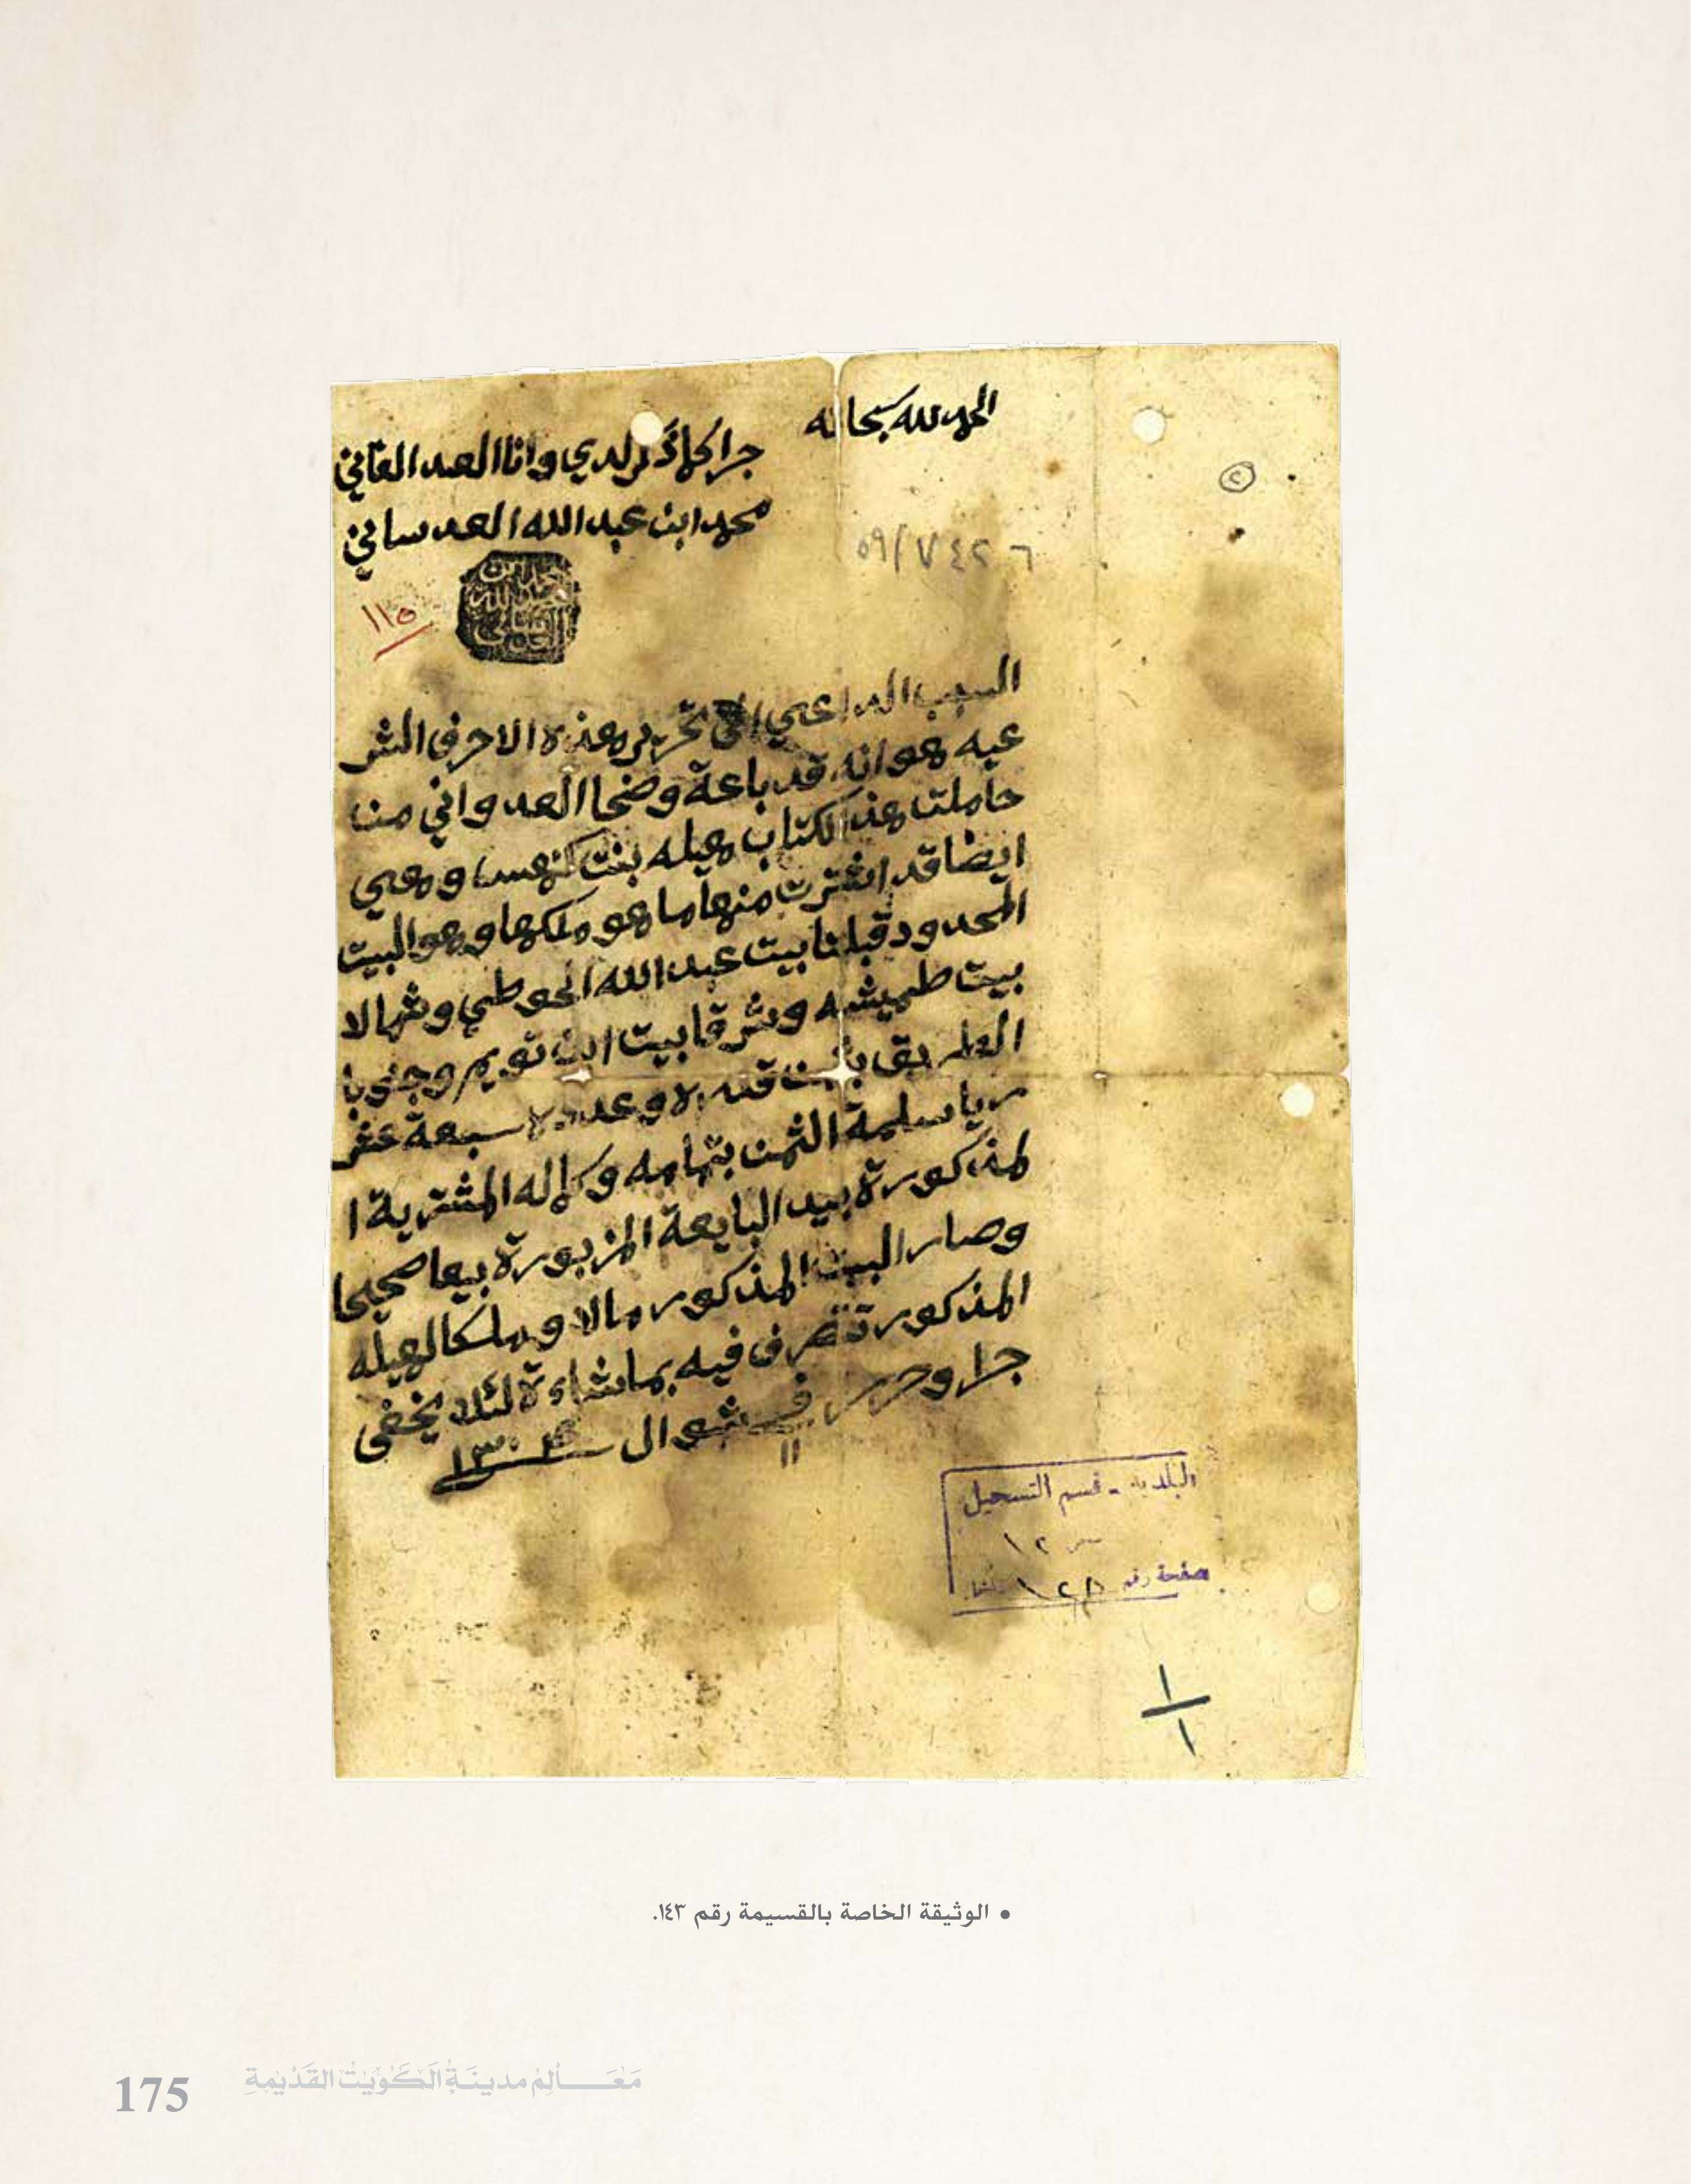 الحمد لله سبحانه
جرا كما ذكر لدي وانا العبد الفاني
محمد ابن عبد الله العدساني
٢
٥٩/٧٤٢٦
١١٥
السبب الداعي الى تحرير هذه الاحرف الشر
عيه هو انه قد باعة وضحا العدواني من
حاملت هذ الكتاب هيله بنت وهي
ايضا قد اشترت منها ما هو ملكها وهو البيت
المحدود قبلتا بيت عبد الله الحوطي وشمالا
بيت طميشه وشرقا بيت ابن تويم وجنوبا
الطريق بثمن قدره وعدده سبعة عشر
ريا سلمة الثمن بتمامه وكماله المشترية ا
لمذكورة بيد البايعة المزبورة بيعا صحيحا
وصار البيت المذكور مالا وملكا لهيله
المذكورة تتصرف فيه بما شاءة لئلا يخفى
جرا وحرر في ١١ شوال سنة
البلدية - قسم التسجيل
١٢
صفحة رقم
• الوثيقة الخاصة بالقسيمة رقم ١٤٣.
175 مَعَالِمُ مدينَةِ الكُوَيْت القَدِيْمَةِ